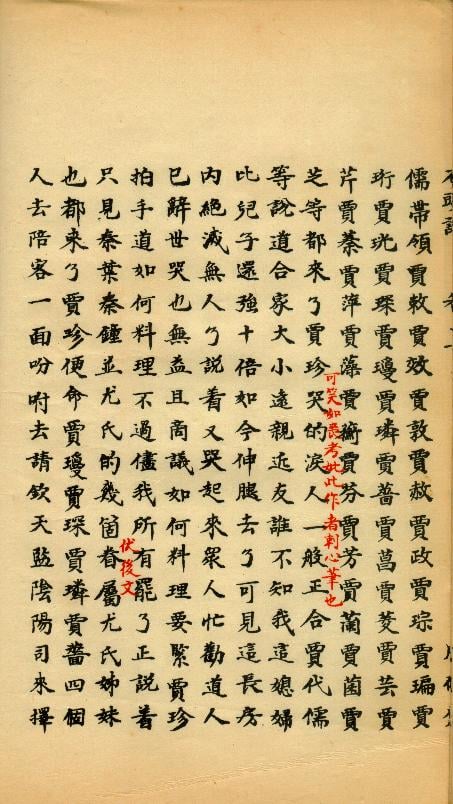 儒帶領賈敕賈效賈敦賈赦賈政賈琮賈㻞賈
珩賈珖賈琛賈瓊賈璘賈薔賈菖賈菱賈芸賈
芹賈蓁賈萍賈藻賈蘅賈芬賈芳賈蘭賈菌賈
可笑如喪考妣此作者刺心筆也
芝等都來了賈珍哭的淚人一般正合賈代儒
等說道合家大小遠親近友誰不知我這媳婦
比兒子還強十倍如今伸腿去了可見這長房
內絕滅無人了說着又哭起來眾人忙勸道人
已辭世哭也無益且商議如何料理要緊賈珍
拍手道如何料理不過儘我所有罷了正說着
伏後文
只見秦葉秦鍾並尤氏的幾箇眷屬尤氏姊妹
也都來了賈珍便命賈瓊賈琛賈璘賈薔四個
人去陪客一面吩咐去請欽天監陰陽司來擇